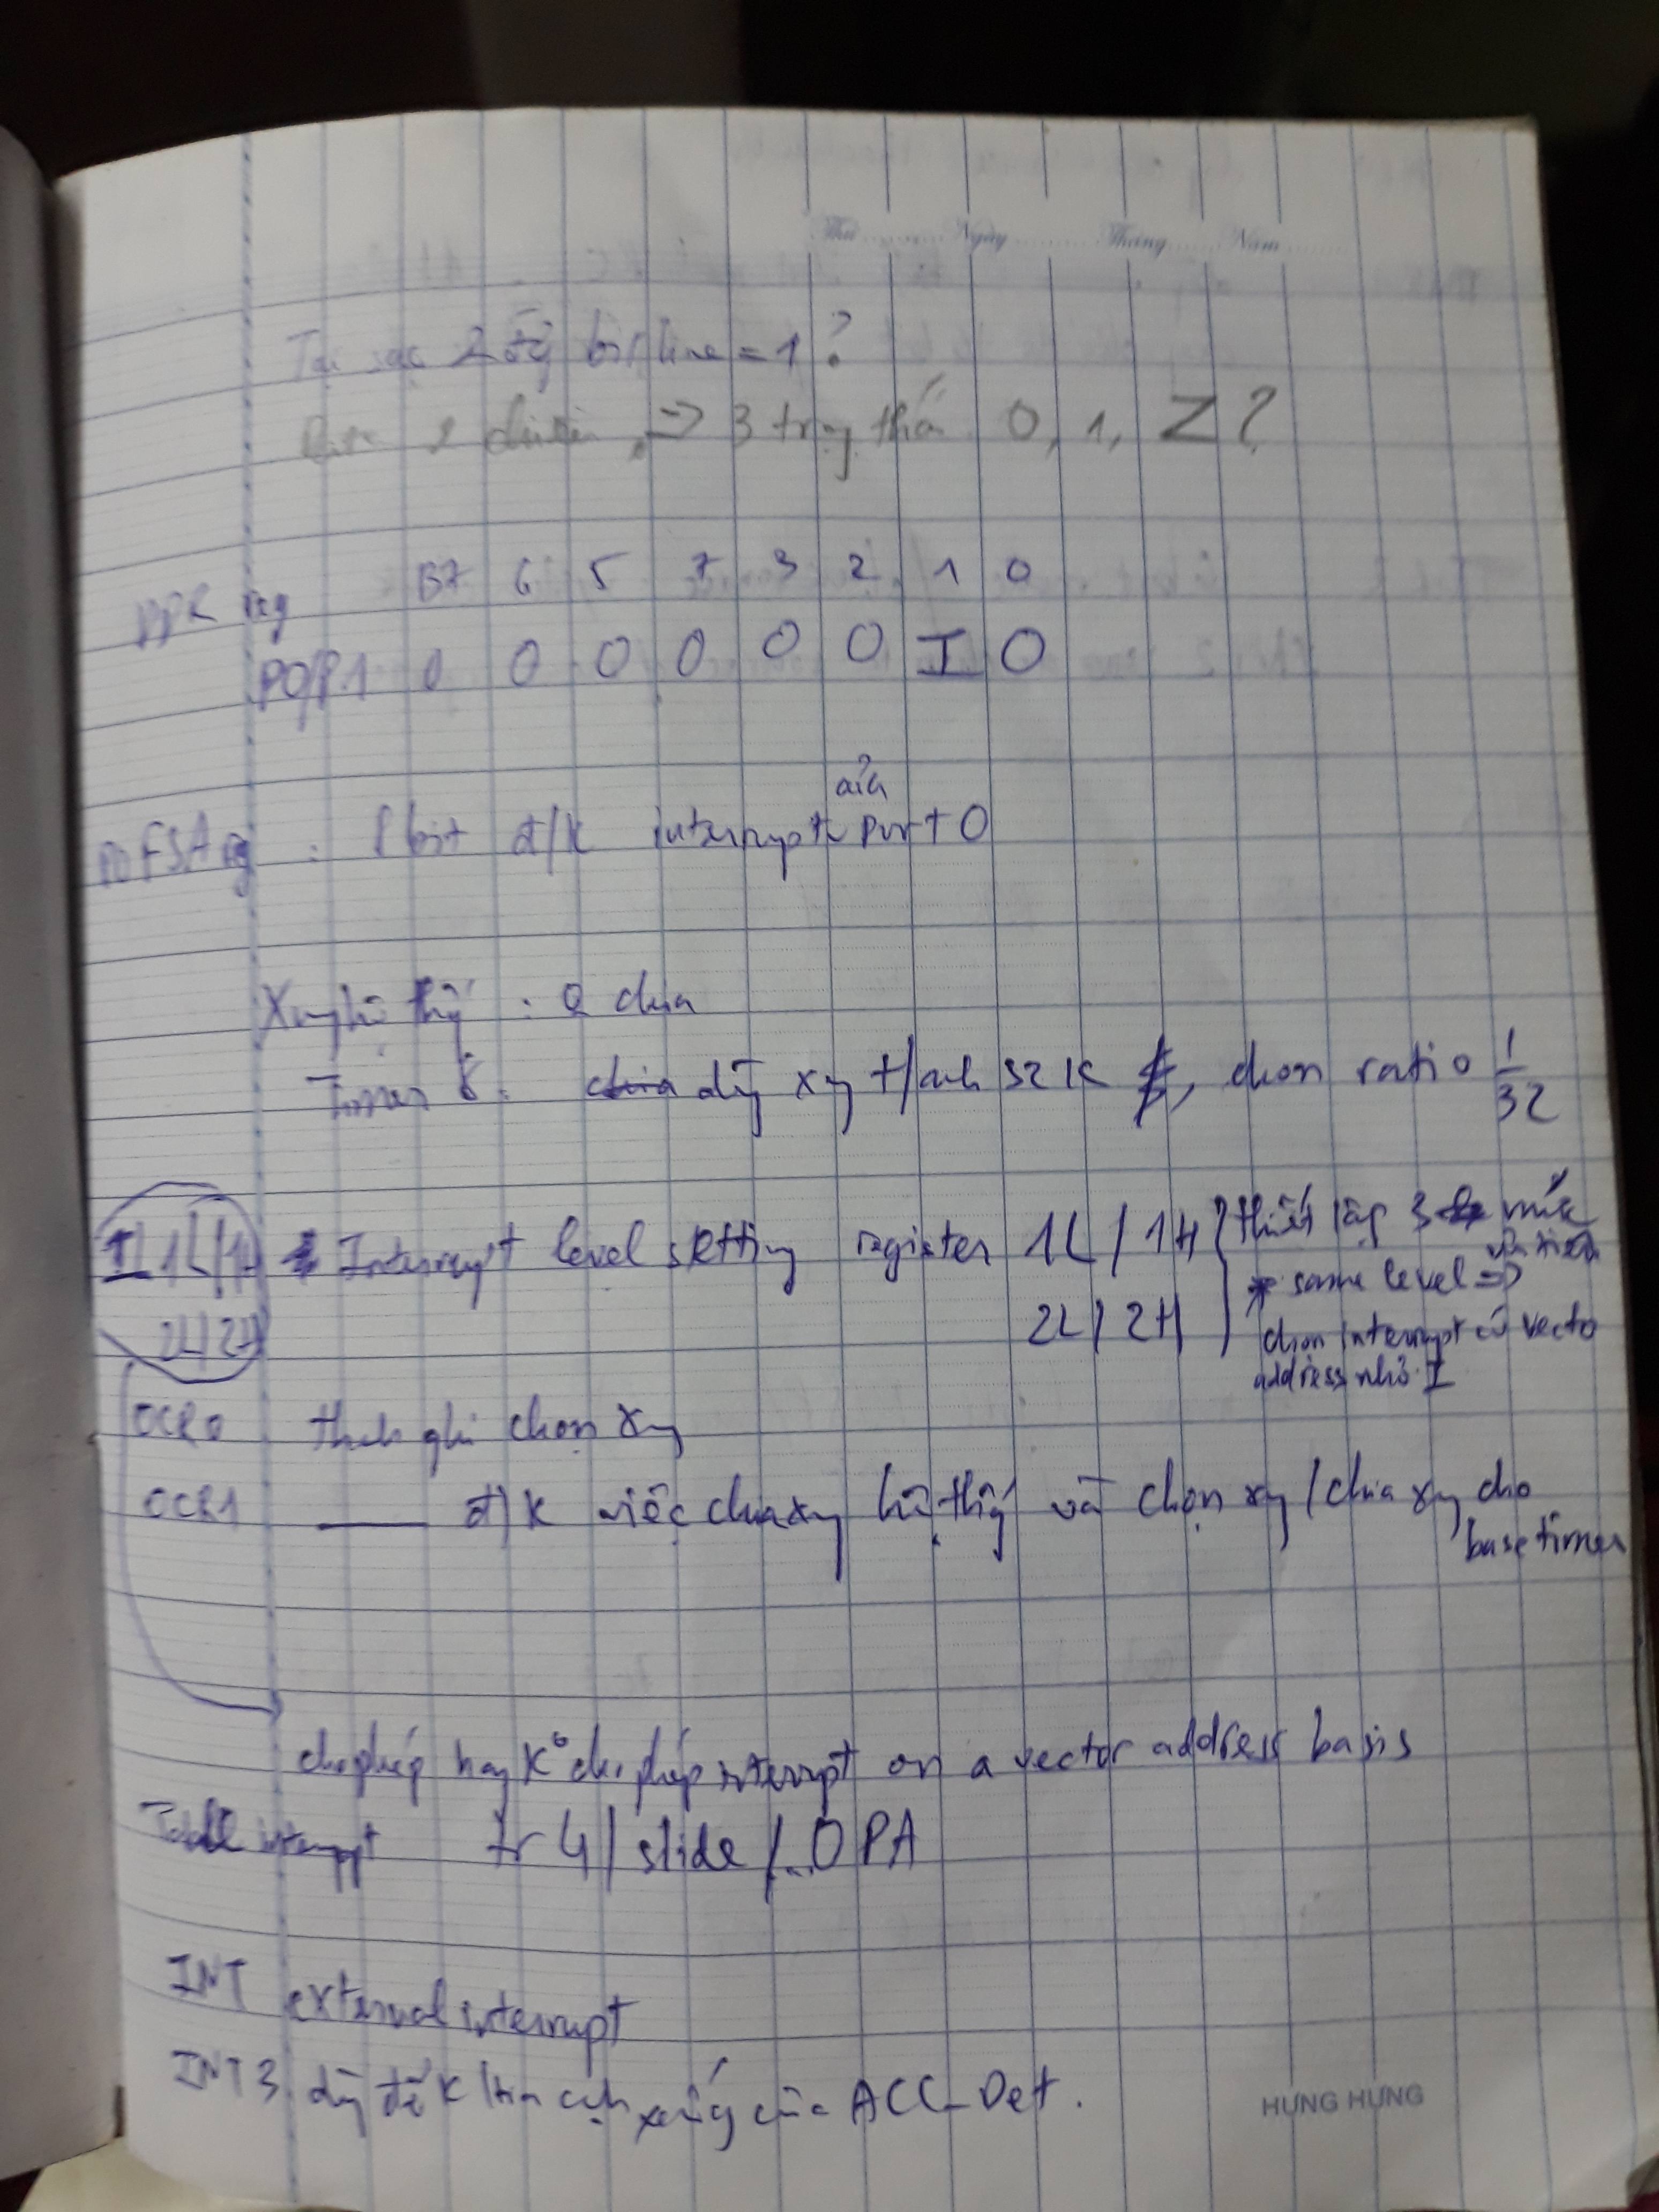 Thứ Ngày Tháng Năm
Tại sao 2 bit line = 1 ?
2 => 3 trạng thái 0, 1, Z ?
B7 6 5 7 3 2 1 0
DDR reg
P0/P.1 0 0 0 0 0 0 I 0
của
P0FSA reg : 8 bit đ/k interrupt Port 0
Xung hệ thống : 0 chia
Timer 8 : chia dùng xung t/anh 32 K, chọn ratio 1/32
I L 1L/1H Interrupt level setting register 1L / 1H thiết lập 3 mức ưu tiên
2L/2H 2L / 2H * same level =>
chọn interrupt có vecto
address nhỏ I
OCR0 thanh ghi chọn xung
OCR1 —— đ/k việc chia xung hệ thống và chọn xung / chia xung cho
base timer
cho phép hay K° cho phép interrupt on a vector address basis
interrupt tr 4 / slide /...OPA
INT external interrupt
INT3 dùng để k/tra cạnh xuống của ACC_Det.
HUNG HUNG